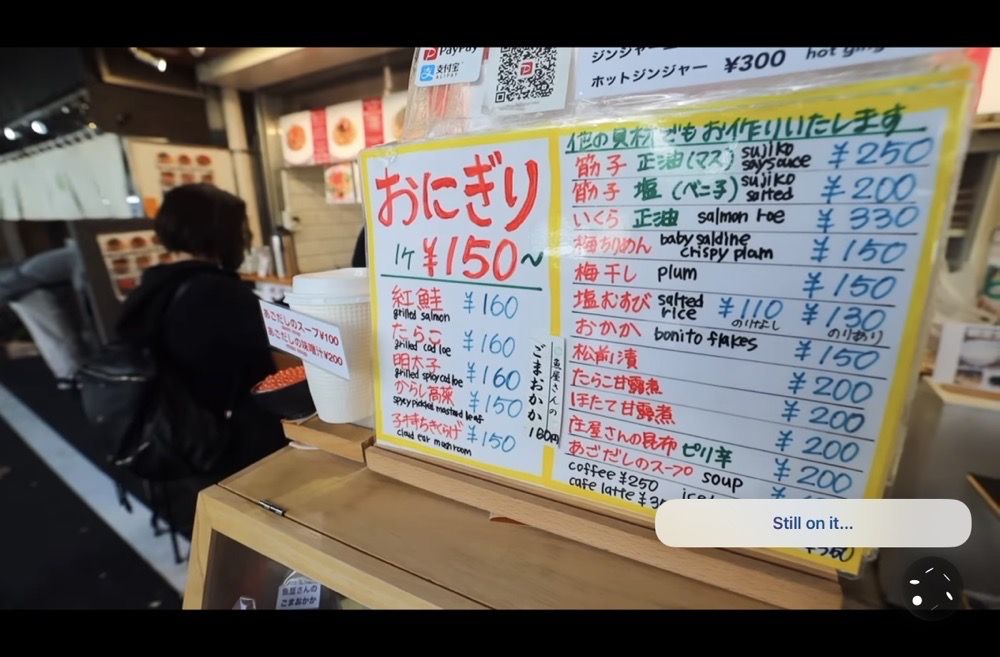 PayPay
支付宝
ALIPAY
ホットジンジャー ¥300
おにぎり
1ケ ¥150~
紅鮭 ¥160
grilled salmon
たらこ ¥160
grilled cod roe
明太子 ¥160
grilled spicy cod roe
からし高菜 ¥150
spicy pickled mustard leaf
子持ちきくらげ ¥150
cloud ear mushroom
魚屋さんの
ごまおかか
160円
他の具材でもお作りいたします
筋子 正油(マス) sujiko saysauce ¥250
筋子 塩 (ベニ子) sujiko salted ¥200
いくら 正油 salmon roe ¥330
梅ちりめん baby saldine crispy plam ¥150
梅干し plum ¥150
塩むすび salted rice ¥110 のりなし ¥130 のりあり
おかか bonito flakes ¥150
松前漬 ¥200
たらこ甘露煮 ¥200
ほたて甘露煮 ¥200
庄屋さんの昆布 ピリ辛 ¥200
あごだしのスープ soup
coffee ¥250
cafe latte
あごだしのスープ ¥100
あごだしの味噌汁 ¥200
魚屋さんの
ごまおかか
Still on it...